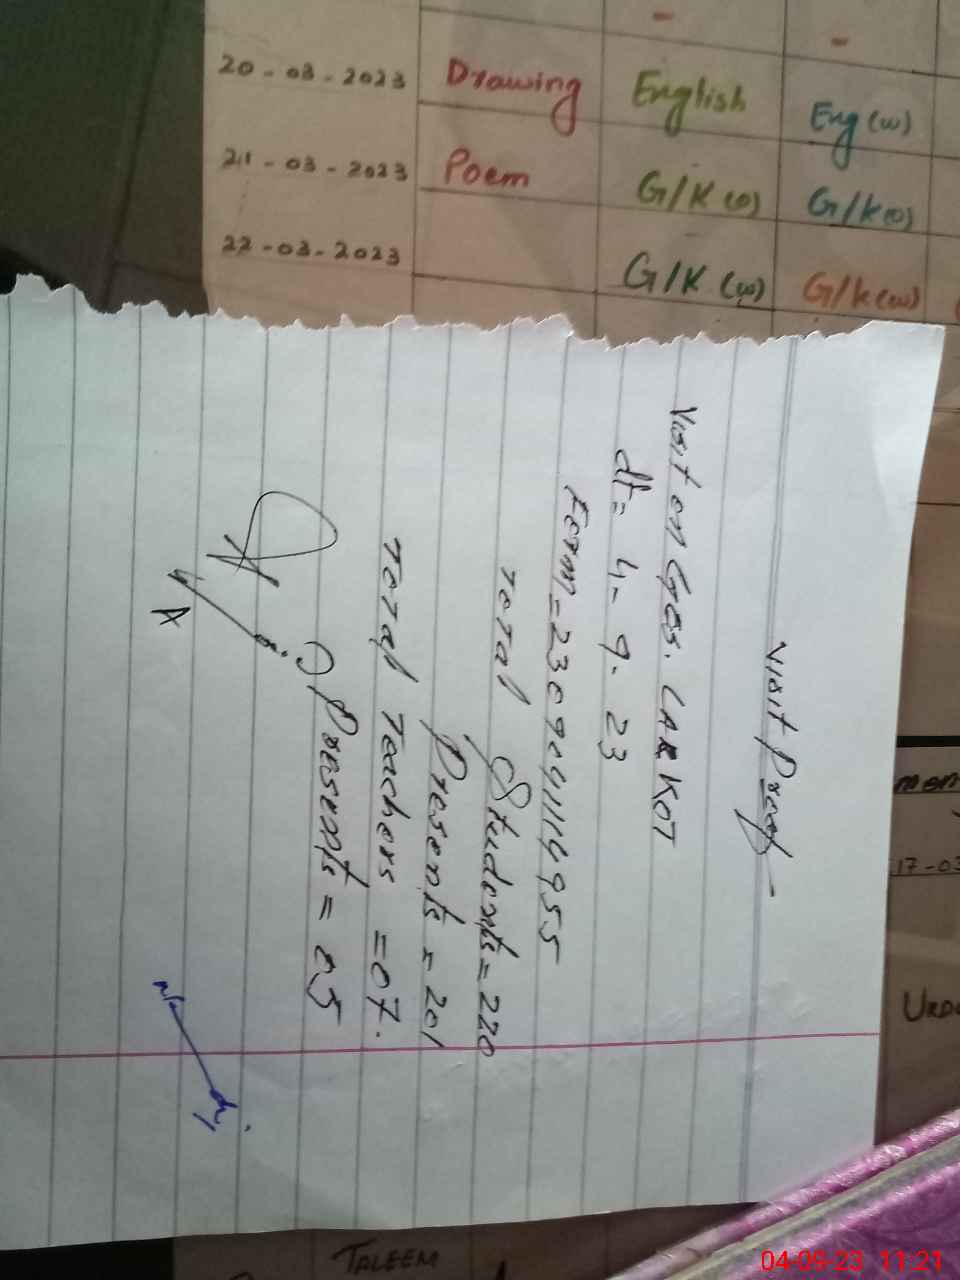 20-03-2023 Drawing English Eng (w)
21-03-2023 Poem G/K (o) G/K (o)
22-03-2023 G/K (w) G/K (w)
Visit Proof
Visit on GGS. LARKOT
dt= 4-9-23
Form=2309041114955
Total Students=220
Presents=201
Total Teachers=07.
Presents=05
17-03
URDU
TALEEM
04-09-23 11:21